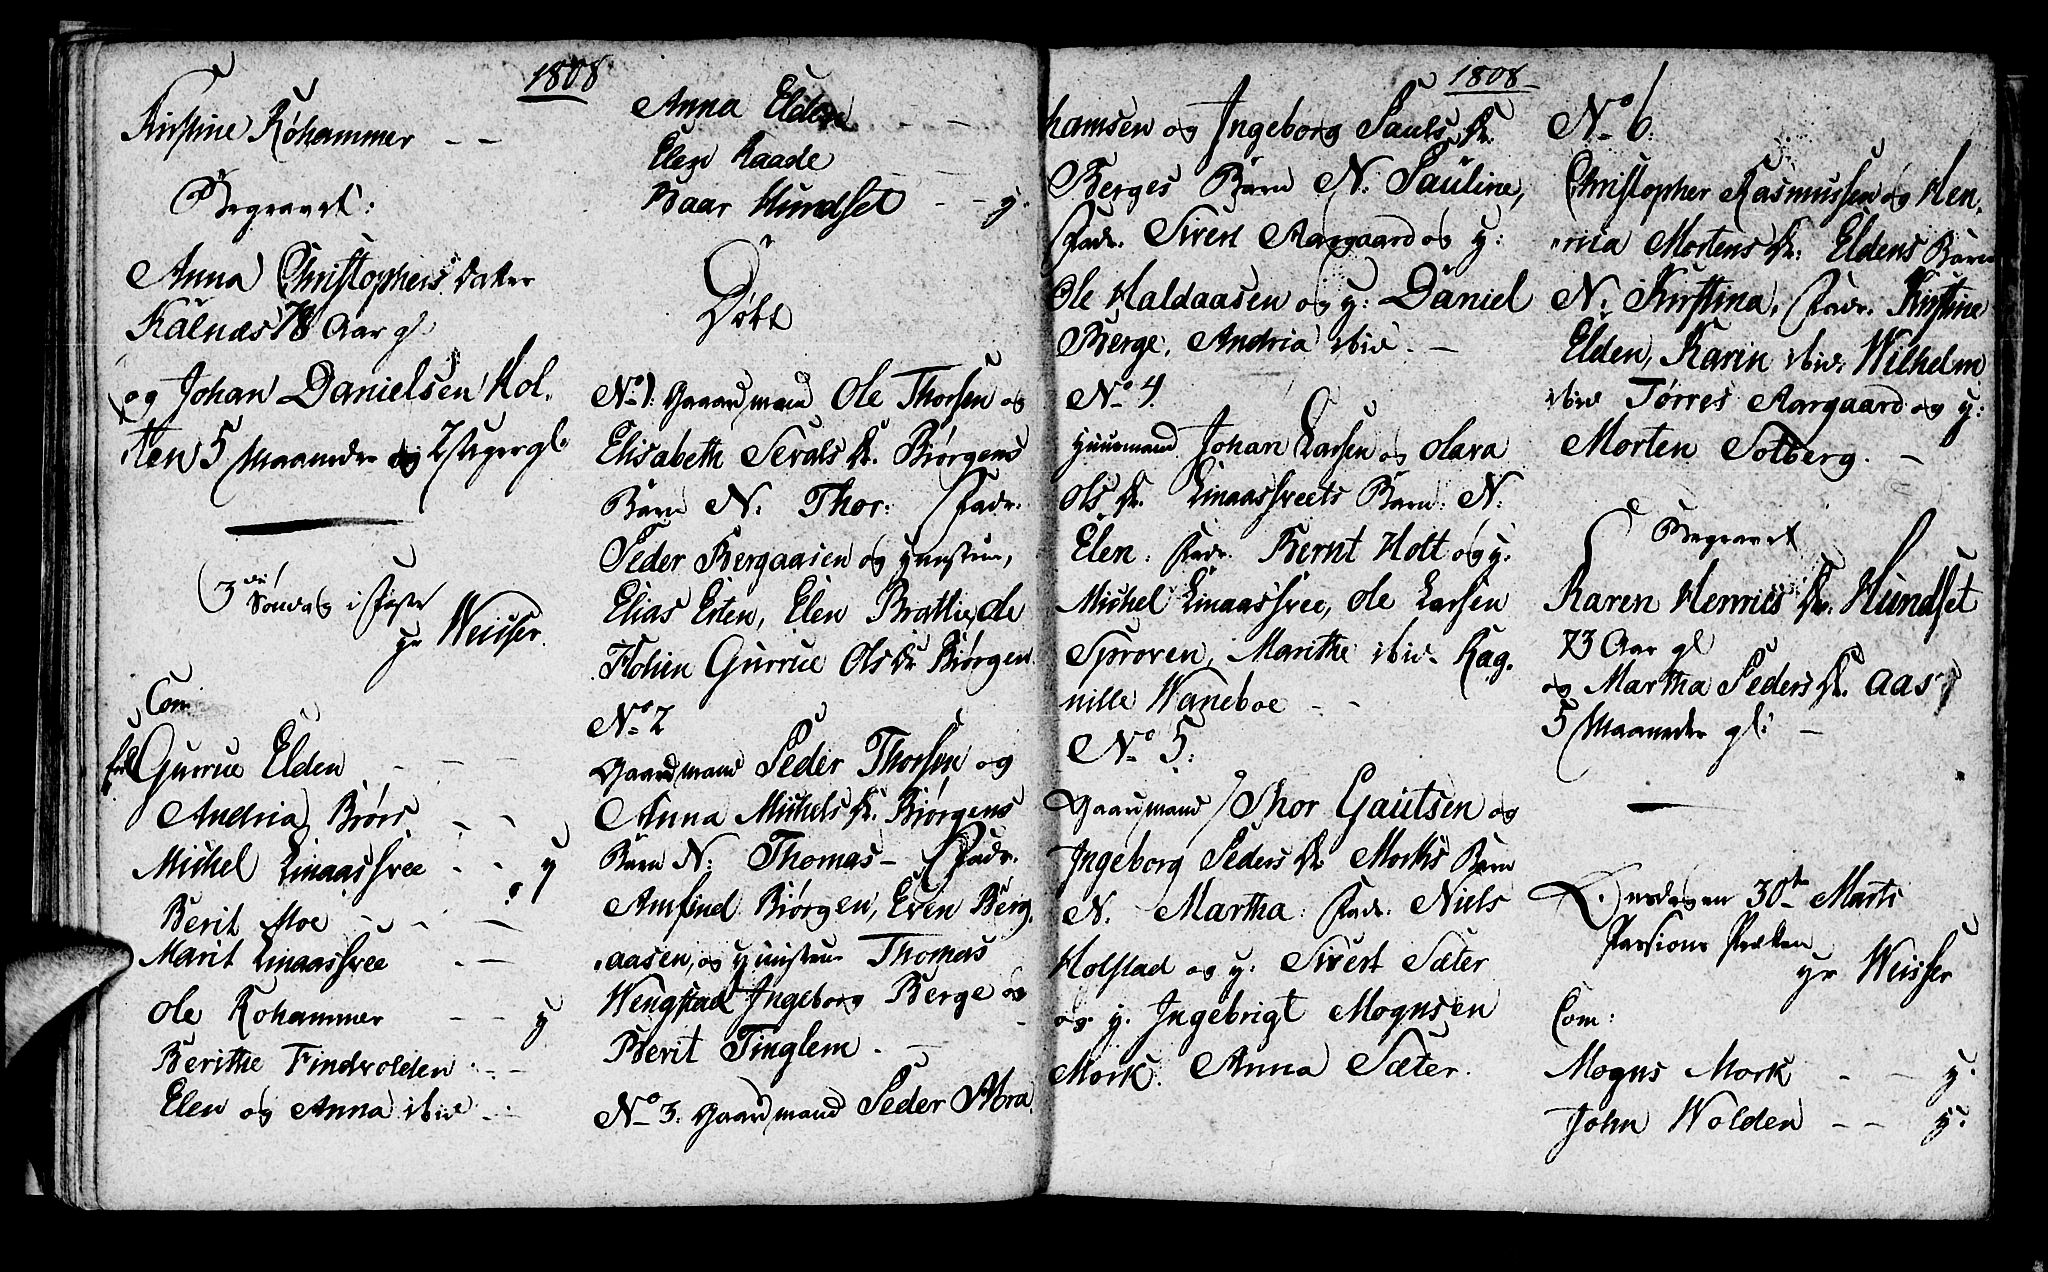 1808
Kirstine Røhammer - -
Begravet:
Anna Christophers Datter
Kalnæs 78 Aar gl.
og Johan Danielsen Hol-
ten 5 Maaneder og 2 Uger gl.
3die Søndag i Faste
Hr Weisser.
Com:
Gurrue Elden - - -
Andria Biørs - -
Michel Linaassvee - - y
Berit Moe - - -
Marit Linaassvee - -
Ole Røhammer - - y
Berithe Findvolden - -
Elen og Anna ibid - -
Anna Elden - -
Elen Raade - -
Baar Hundset - - y.
Døbt
No 1. Gaardmand Ole Thorsen og
Elisabeth Sevals Dr. Biørgens
Barn N. Thor: Fadr.
Peder Bergaasen og Hustrue,
Elias Esten, Elen Brattie, de
Gurrue Ols Dr Biørgen
No 2
Gaardmand Peder Thorsen og
Anna Michels Dr. Biørgens
Barn N: Thomas - Fadr.
Amfind Biørgen, Even Berg-
aasen, og Hustrue Thomas
Wengstad Ingeborg Berge og
Berit Tinglem. -
No 3. Gaardmand Peder Abra-
1808
hamsen og Ingeborg Pauls Dr.
Berges Barn N. Pauline,
Fadr. Sivert Aargaard og H:
Ole Haldaasen og H: Daniel
Berge, Andria ibid. -
No 4.
Huusmand Johan Larsen og Olava
Ols Dr. Linaassveets Barn: N:
Elen: Fadr. Bernt Holt og H.
Michel Linaassvee, Ole Larsen
Sprøven, Marithe ibid. Rag-
nille Waneboe - -
No 5:
Gaardmand Thor Gautsen og
Ingeborg Peders Dr Morks Barn
N. Martha: Fadr. Niels
Holstad og H: Sivert Sæter
og H. Ingebrigt Mognsen
Mork. Anna Sæter.
No 6.
Christopher Rasmussen og Hen-
rica Mortens Dr: Eldens Barn
N: Kirstina, Fadr. Kirstine
Elden, Karin ibid: Wilhelm
ibid Tørres Aargaard og H:
Morten Solberg. -
Begravet
Karen Henrics Dr: Hundset
73 Aar gl
og Martha Peders Dr. Aas
5 Maaneder gl: -
Onsdagen 30te Marts
Passions Præken
Hr Weisser
Com:
Mogns Mork - - y.
John Wolden - - y.